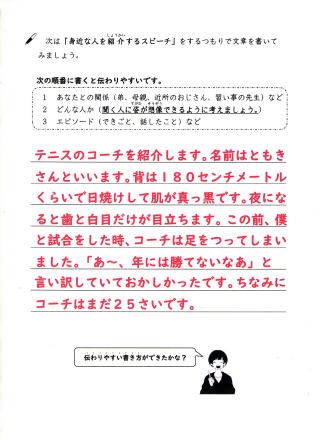 次は「身近な人を紹介するスピーチ」をするつもりで文章を書いて
みましょう。
次の順番に書くと伝わりやすいです。
1 あなたとの関係（弟、母親、近所のおじさん、習い事の先生）など
2 どんな人か（聞く人に姿が想像できるように考えましょう。）
3 エピソード（できごと、話したこと）など
テニスのコーチを紹介します。名前はともき
さんといいます。背は１８０センチメートル
くらいで日焼けして肌が真っ黒です。夜にな
ると歯と白目だけが目立ちます。この前、僕
と試合をした時、コーチは足をつってしまい
ました。「あ〜、年には勝てないなあ」と
言い訳していておかしかったです。ちなみに
コーチはまだ２５さいです。
伝わりやすい書き方ができたかな？